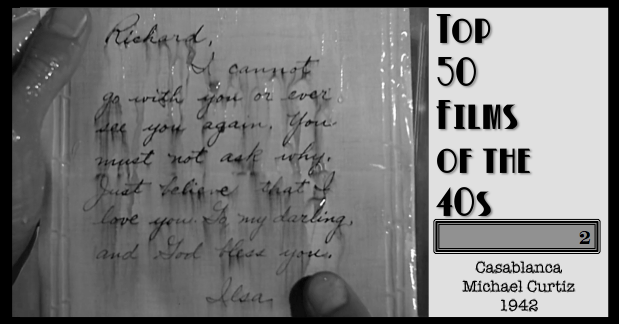 Richard,
I cannot
go with you or ever
see you again. You
must not ask why.
Just believe that I
love you. Go, my darling,
and God bless you.
Ilsa
Top
50
Films
of the
40s
2
Casablanca
Michael Curtiz
1942